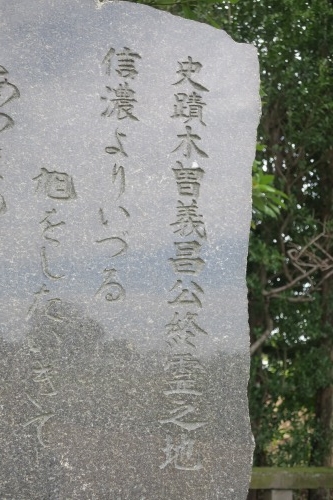 史蹟木曽義昌公終霊之地
信濃よりいづる
旭をしたいきて